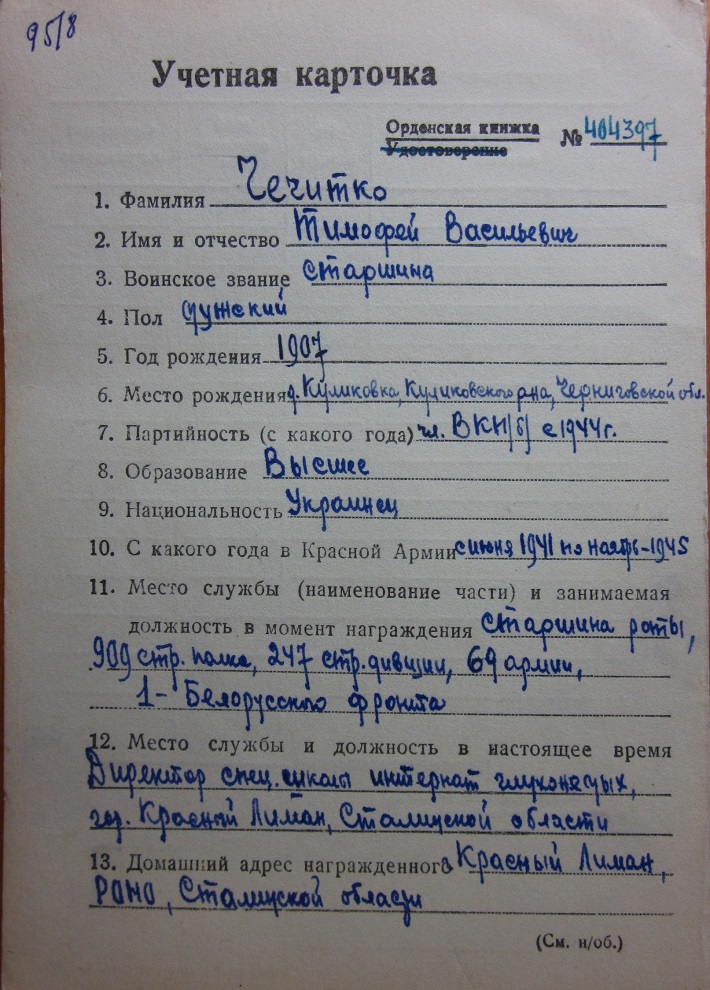 95/8
Учетная карточка
Орденская книжка № 404397
Удостоверение
1. Фамилия Чечитко
2. Имя и отчество Тимофей Васильевич
3. Воинское звание старшина
4. Пол мужской
5. Год рождения 1907
6. Место рождения д. Куликовка, Куликовского р-на, Черниговской обл.
7. Партийность (с какого года) чл. ВКП/б/ с 1944г.
8. Образование Высшее
9. Национальность Украинец
10. С какого года в Красной Армии с июня 1941 по ноябрь-1945
11. Место службы (наименование части) и занимаемая
должность в момент награждения старшина роты,
909 стр. полка, 247 стр. дивизии, 69 армии,
1- Белорусского фронта
12. Место службы и должность в настоящее время
Директор спец. школы интернат глухонемых,
гор. Красный Лиман, Сталинской области
13. Домашний адрес награжденного Красный Лиман,
РОНО, Сталинской области
(См. н/об.)